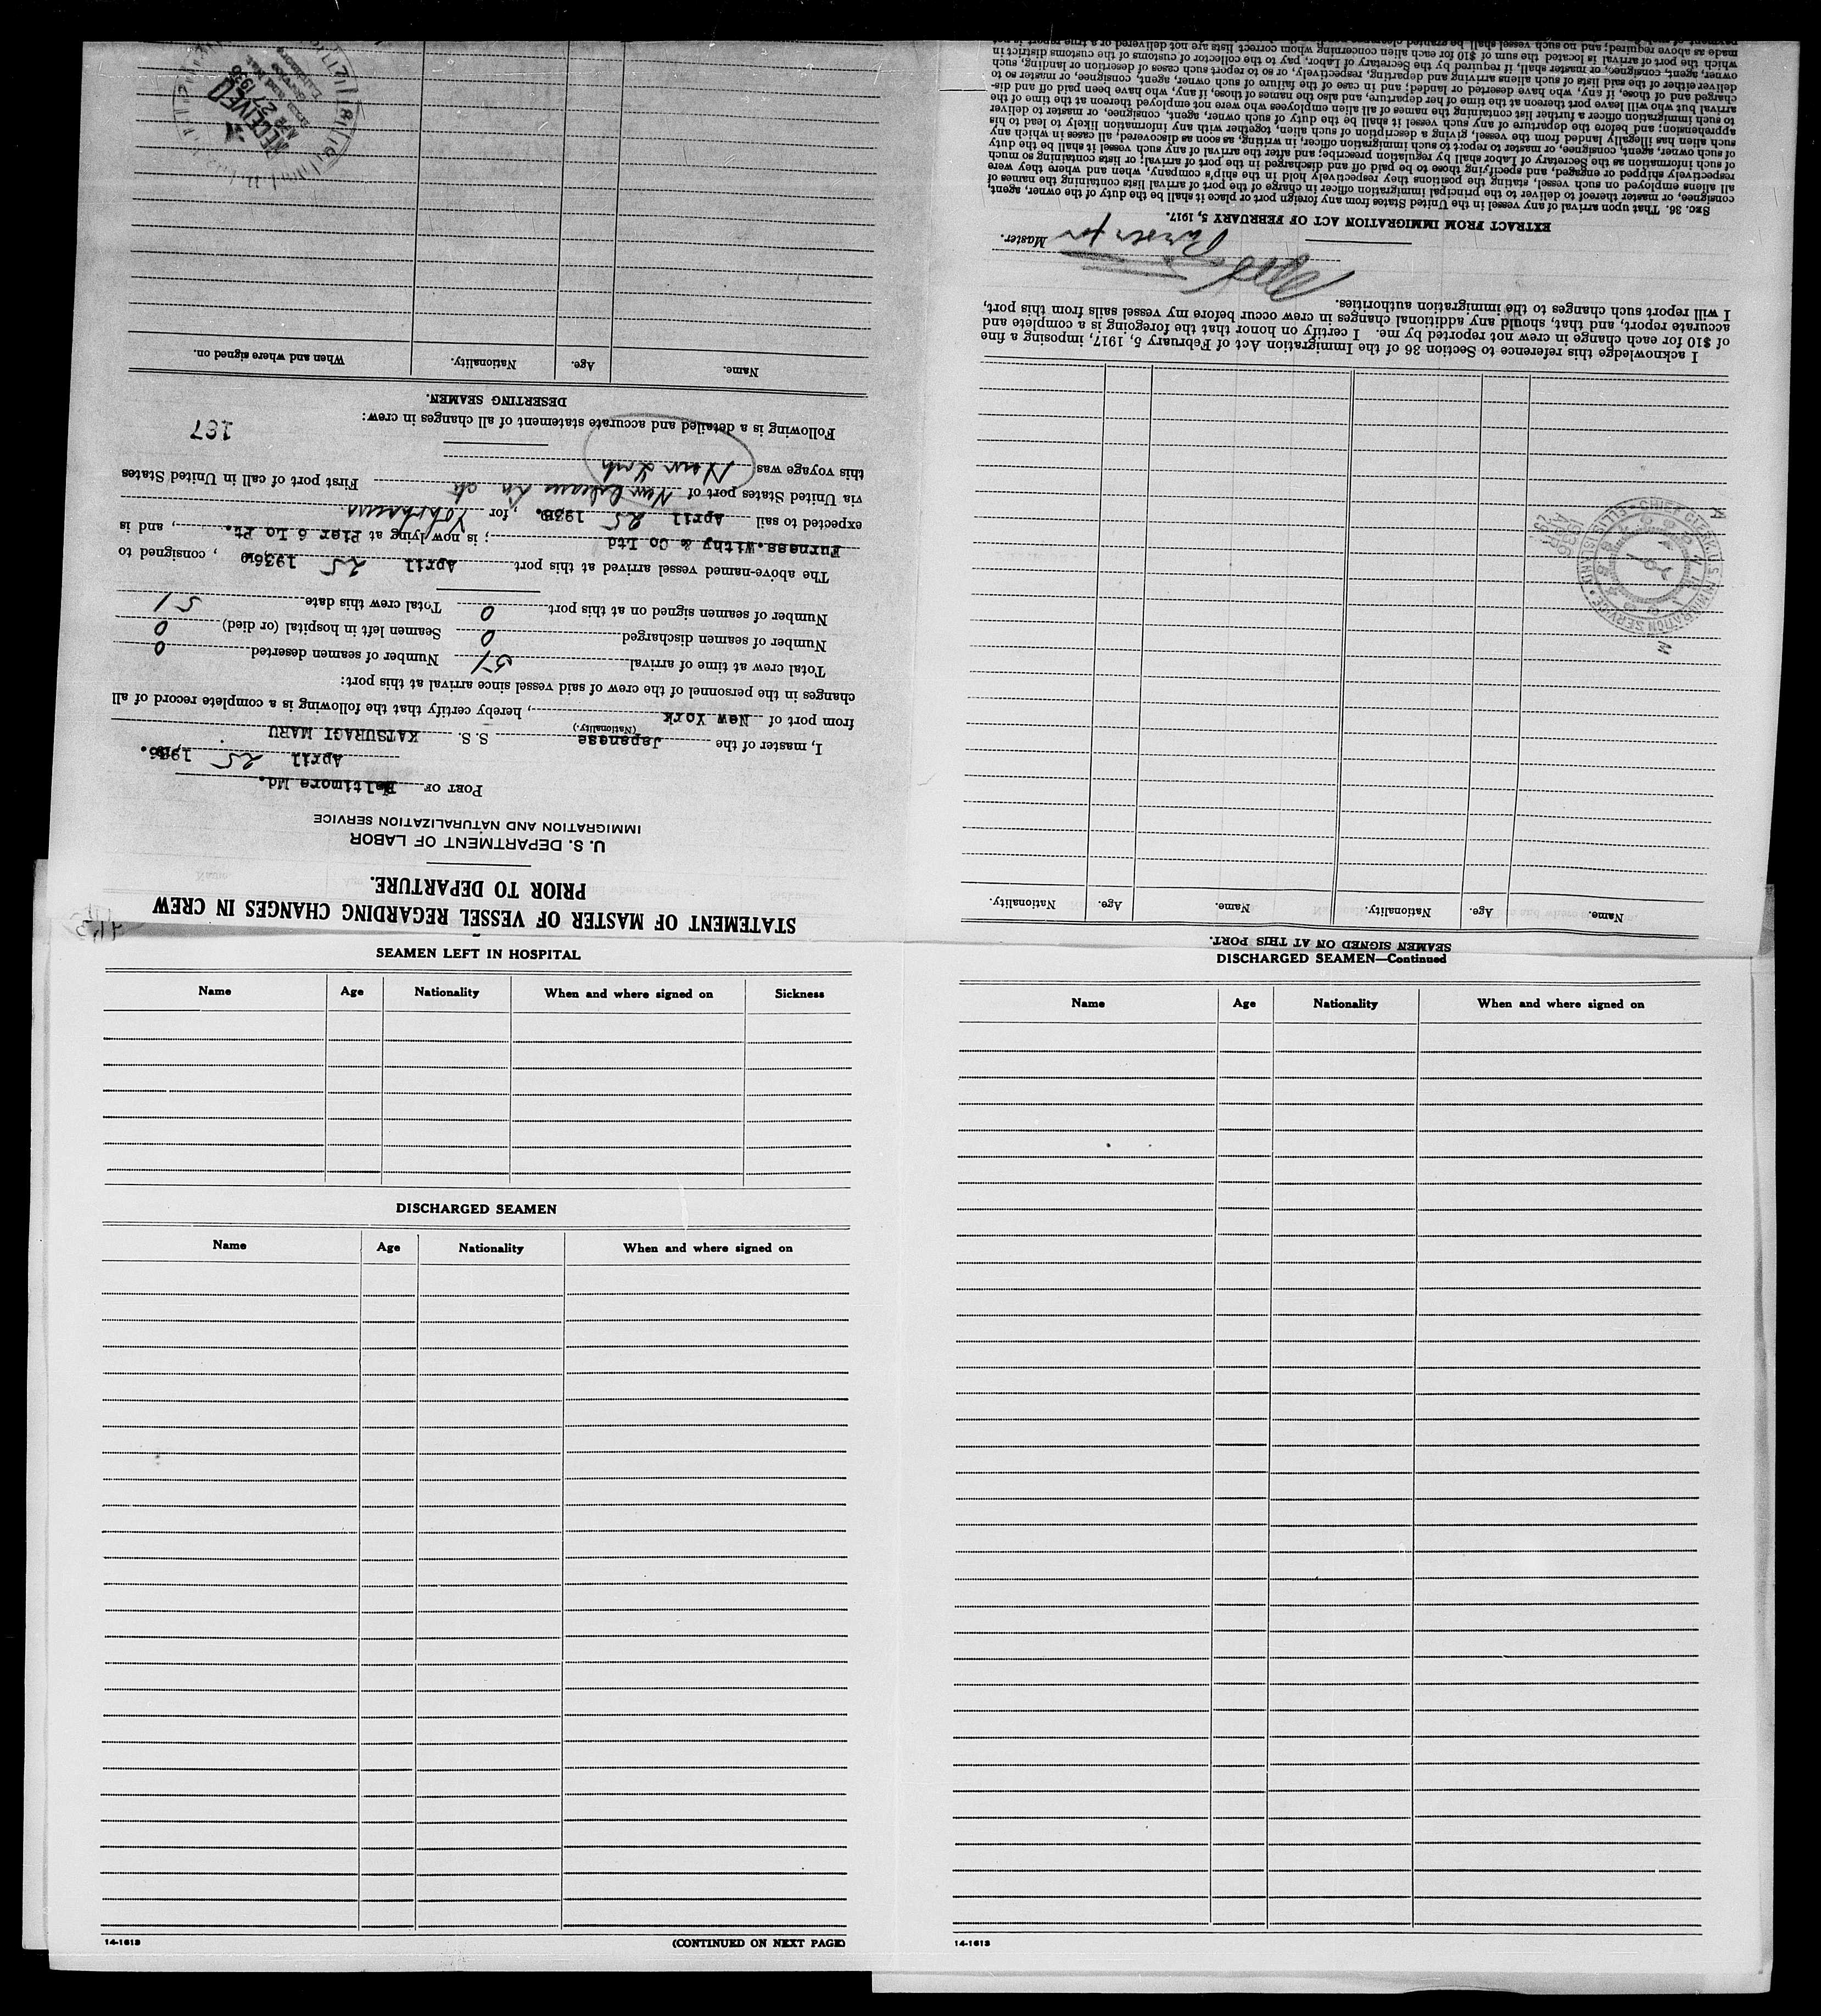 STATEMENT OF MASTER OF VESSEL REGARDING CHANGES IN CREW
PRIOR TO DEPARTURE.
U. S. DEPARTMENT OF LABOR
IMMIGRATION AND NATURALIZATION SERVICE
PORT OF Baltimore Md.
April 25 1936.
I, master of the Japanese S. S. KATSURAGI MARU
(Nationality.)
from port of New York, hereby certify that the following is a complete record of all
changes in the personnel of the crew of said vessel since arrival at this port:
Total crew at time of arrival 51 Number of seamen deserted 0
Number of seamen discharged 0 Seamen left in hospital (or died) 0
Number of seamen signed on at this port 0 Total crew this date 51
The above-named vessel arrived at this port April 25 1936, consigned to
Furness.Withy & Co Ltd; is now lying at Pier 6 Lo Pt., and is
expected to sail April 25 1936., for
via United States port of New Orleans First port of call in United States
this voyage was New York
Following is a detailed and accurate statement of all changes in crew:
187
DESERTING SEAMEN.
Name. Age. Nationality. When and where signed on.
RECEIVED
APR 27 1936
SEAMEN SIGNED ON AT THIS PORT.
Name. Age. Nationality. Name. Age. Nationality.
CHIEF CLERK, U. S. IMMIGRATION SERVICE • ELLIS ISLAND
I acknowledge this reference to Section 36 of the Immigration Act of February 5, 1917, imposing a fine
of $10 for each change in crew not reported by me. I certify on honor that the foregoing is a complete and
accurate report, and that, should any additional changes in crew occur before my vessel sails from this port,
I will report such changes to the immigration authorities.
Purser for Master.
EXTRACT FROM IMMIGRATION ACT OF FEBRUARY 5, 1917.
SEC. 36. That upon arrival of any vessel in the United States from any foreign port or place it shall be the duty of the owner, agent,
consignee, or master thereof to deliver to the principal immigration officer in charge of the port of arrival lists containing the names of
all aliens employed on such vessel, stating the positions they respectively hold in the ship's company, when and where they were
respectively shipped or engaged, and specifying those to be paid off and discharged in the port of arrival; or lists containing so much
of such information as the Secretary of Labor shall by regulation prescribe; and after the arrival of any such vessel it shall be the duty
of such owner, agent, consignee, or master to report to such immigration officer, in writing, as soon as discovered, all cases in which any
such alien has illegally landed from the vessel, giving a description of such alien, together with any information likely to lead to his
apprehension; and before the departure of any such vessel it shall be the duty of such owner, agent, consignee, or master to deliver
to such immigration officer a further list containing the names of all alien employees who were not employed thereon at the time of the
arrival but who will leave port thereon at the time of her departure, and also the names of those, if any, who have been paid off and dis-
charged and of those, if any, who have deserted or landed; and in case of the failure of such owner, agent, consignee, or master so to
deliver either of the said lists of such aliens arriving and departing, respectively, or so to report such cases of desertion or landing, such
owner, agent, consignee, or master shall, if required by the Secretary of Labor, pay to the collector of customs of the customs district in
which the port of arrival is located the sum of $10 for each alien concerning whom correct lists are not delivered or a true report is not
made as above required; and no such vessel shall be granted clearance
SEAMEN LEFT IN HOSPITAL
Name Age Nationality When and where signed on Sickness
DISCHARGED SEAMEN
Name Age Nationality When and where signed on
14-1613 (CONTINUED ON NEXT PAGE)
DISCHARGED SEAMEN—Continued
Name Age Nationality When and where signed on
14-1613